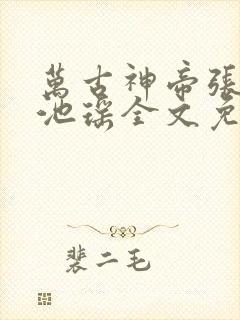 萬古神帝張
池瑤全文免
裴二毛